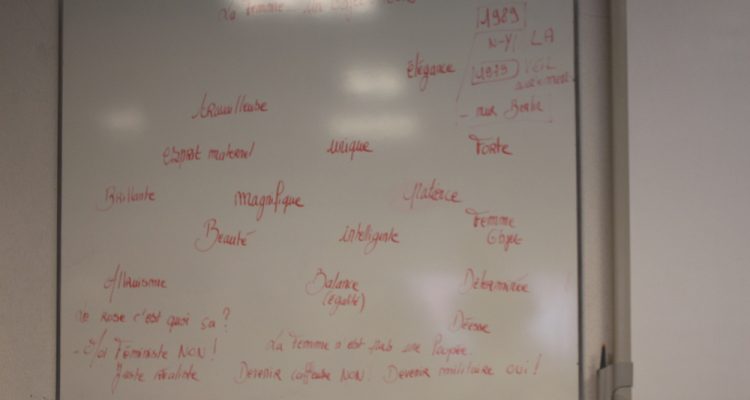 La Femme un objet
1989
N-Y/ LA
élégance
1979 VEIL
avortem.
Travailleuse
- mur Berlin
Esprit maternel
unique
Forte
Brillante
magnifique
Patience
Femme
Objet
Beauté
intelligente
Altruisme
Balance
(égalité)
Déterminée !
Le Rose c'est quoi ça ?
Déesse
- Moi Féministe NON !
La Femme n'est pas une Poupée.
Juste réaliste
Devenir coiffeuse NON ! Devenir militaire oui !